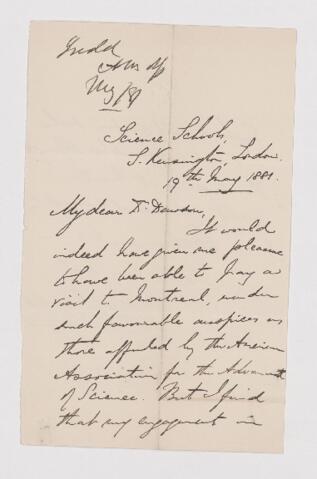 Science Schools,
S. Kensington, London.
19th May 1881.
My dear Dr. Dawson,
It would
indeed have given me pleasure
to have been able to pay a
visit to Montreal, under
such favourable auspices as
those afforded by the American
Association for the Advancemt
of Science. But I find
that my engagement in